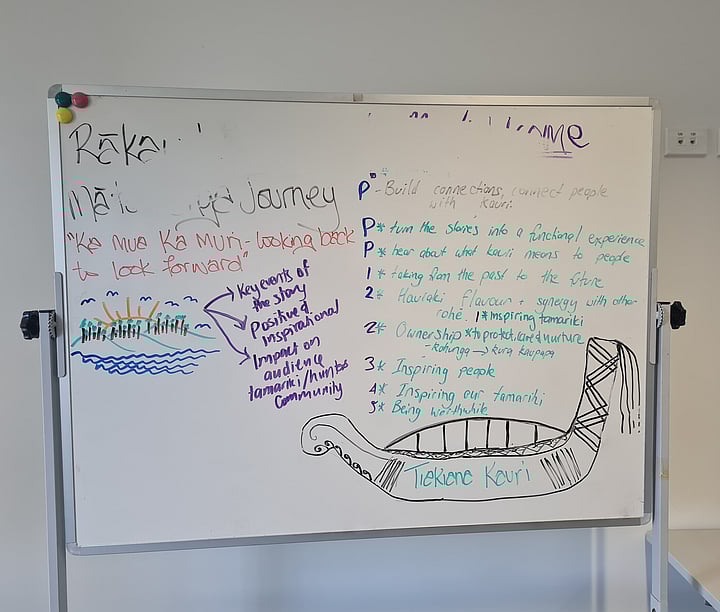 journey
"Ka mua Ka Muri - looking back
to look forward"
Key events of
the story
Positive &
Inspirational
Impact on
audience
tamariki/
Community
P - Build connections, connect people
with kauri
P * turn the stories into a functional experience
P * hear about what kauri means to people
1 * taking from the past to the future
2 * Hauraki flavour + synergy with other
rohe. 1 * Inspiring tamariki
2 * Ownership * to protect, care & nurture
- Kohunga → kura kaupapa
3 * Inspiring people
4 * Inspiring our tamariki
5 * Being worthwhile
Tiakiana Kauri